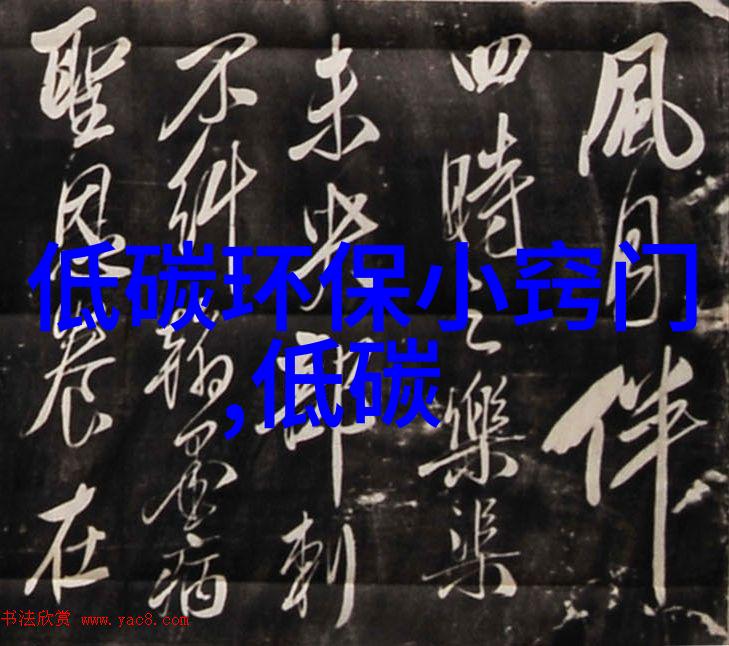 風月伴
四時之樂渠
未郎刺
不翰墨病
聖恩養在
低碳环保小窍门
,低碳
书法欣赏 www.yac8.com